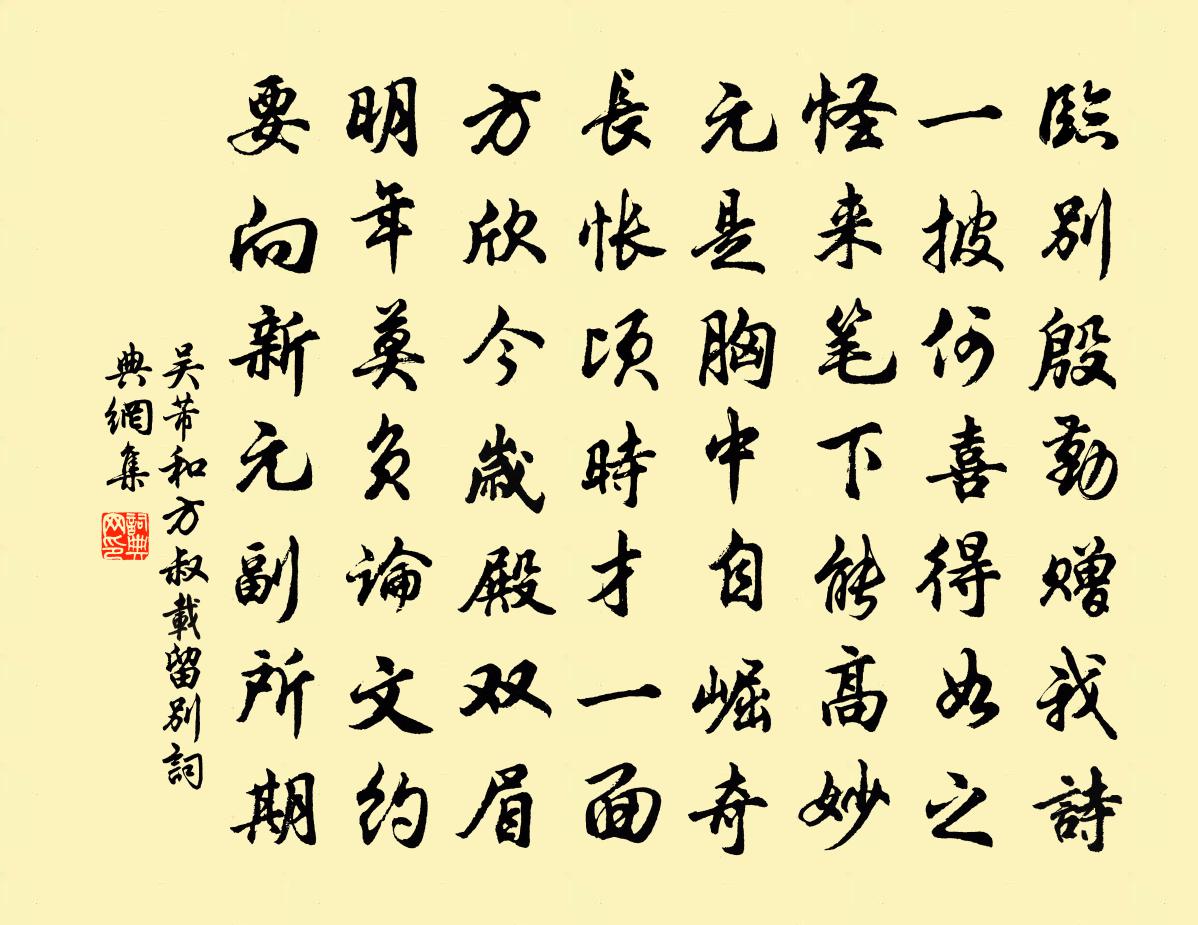 臨别殷勤赠我詩
一披何喜得如之
怪来笔下能高妙
元是胸中自崛奇
長怅顷時才一面
方欣今歳殿双眉
明年莫负論文约
要向新元副所期
吴芾和方叔載留别詞
典網集
詞典网印